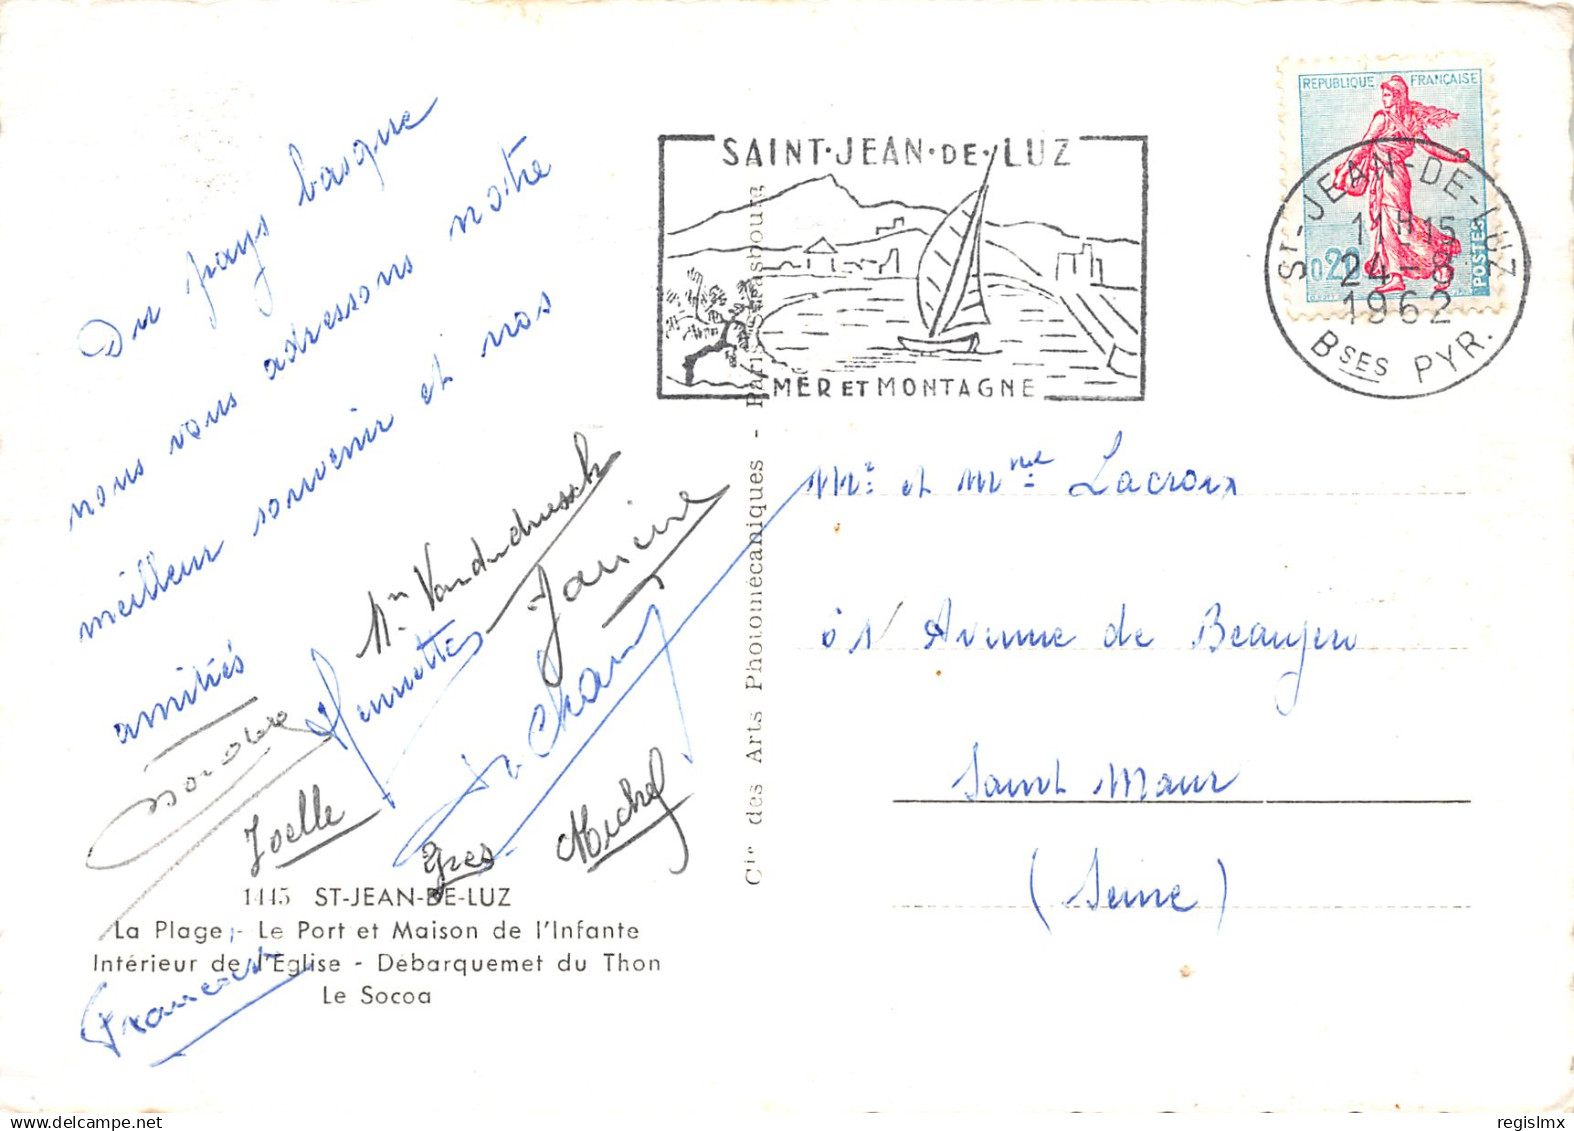 Du pays basque
nous vous adressons notre
meilleur souvenir et nos
amitiés
Janine
Joelle
Yves
Michel
1445 ST-JEAN-DE-LUZ
La Plage - Le Port et Maison de l'Infante
Intérieur de l'Eglise - Débarquemet du Thon
Le Socoa
Cie des Arts Photomécaniques - Paris-Strasbourg
SAINT·JEAN·DE·LUZ
MER ET MONTAGNE
REPUBLIQUE FRANÇAISE
POSTES
ST-JEAN-DE-LUZ
11H15
24-8
1962
BSES PYR.
Mr et Mme Lacroix
Avenue de Beaujeu
Saint Maur
(Seine)
regislmx